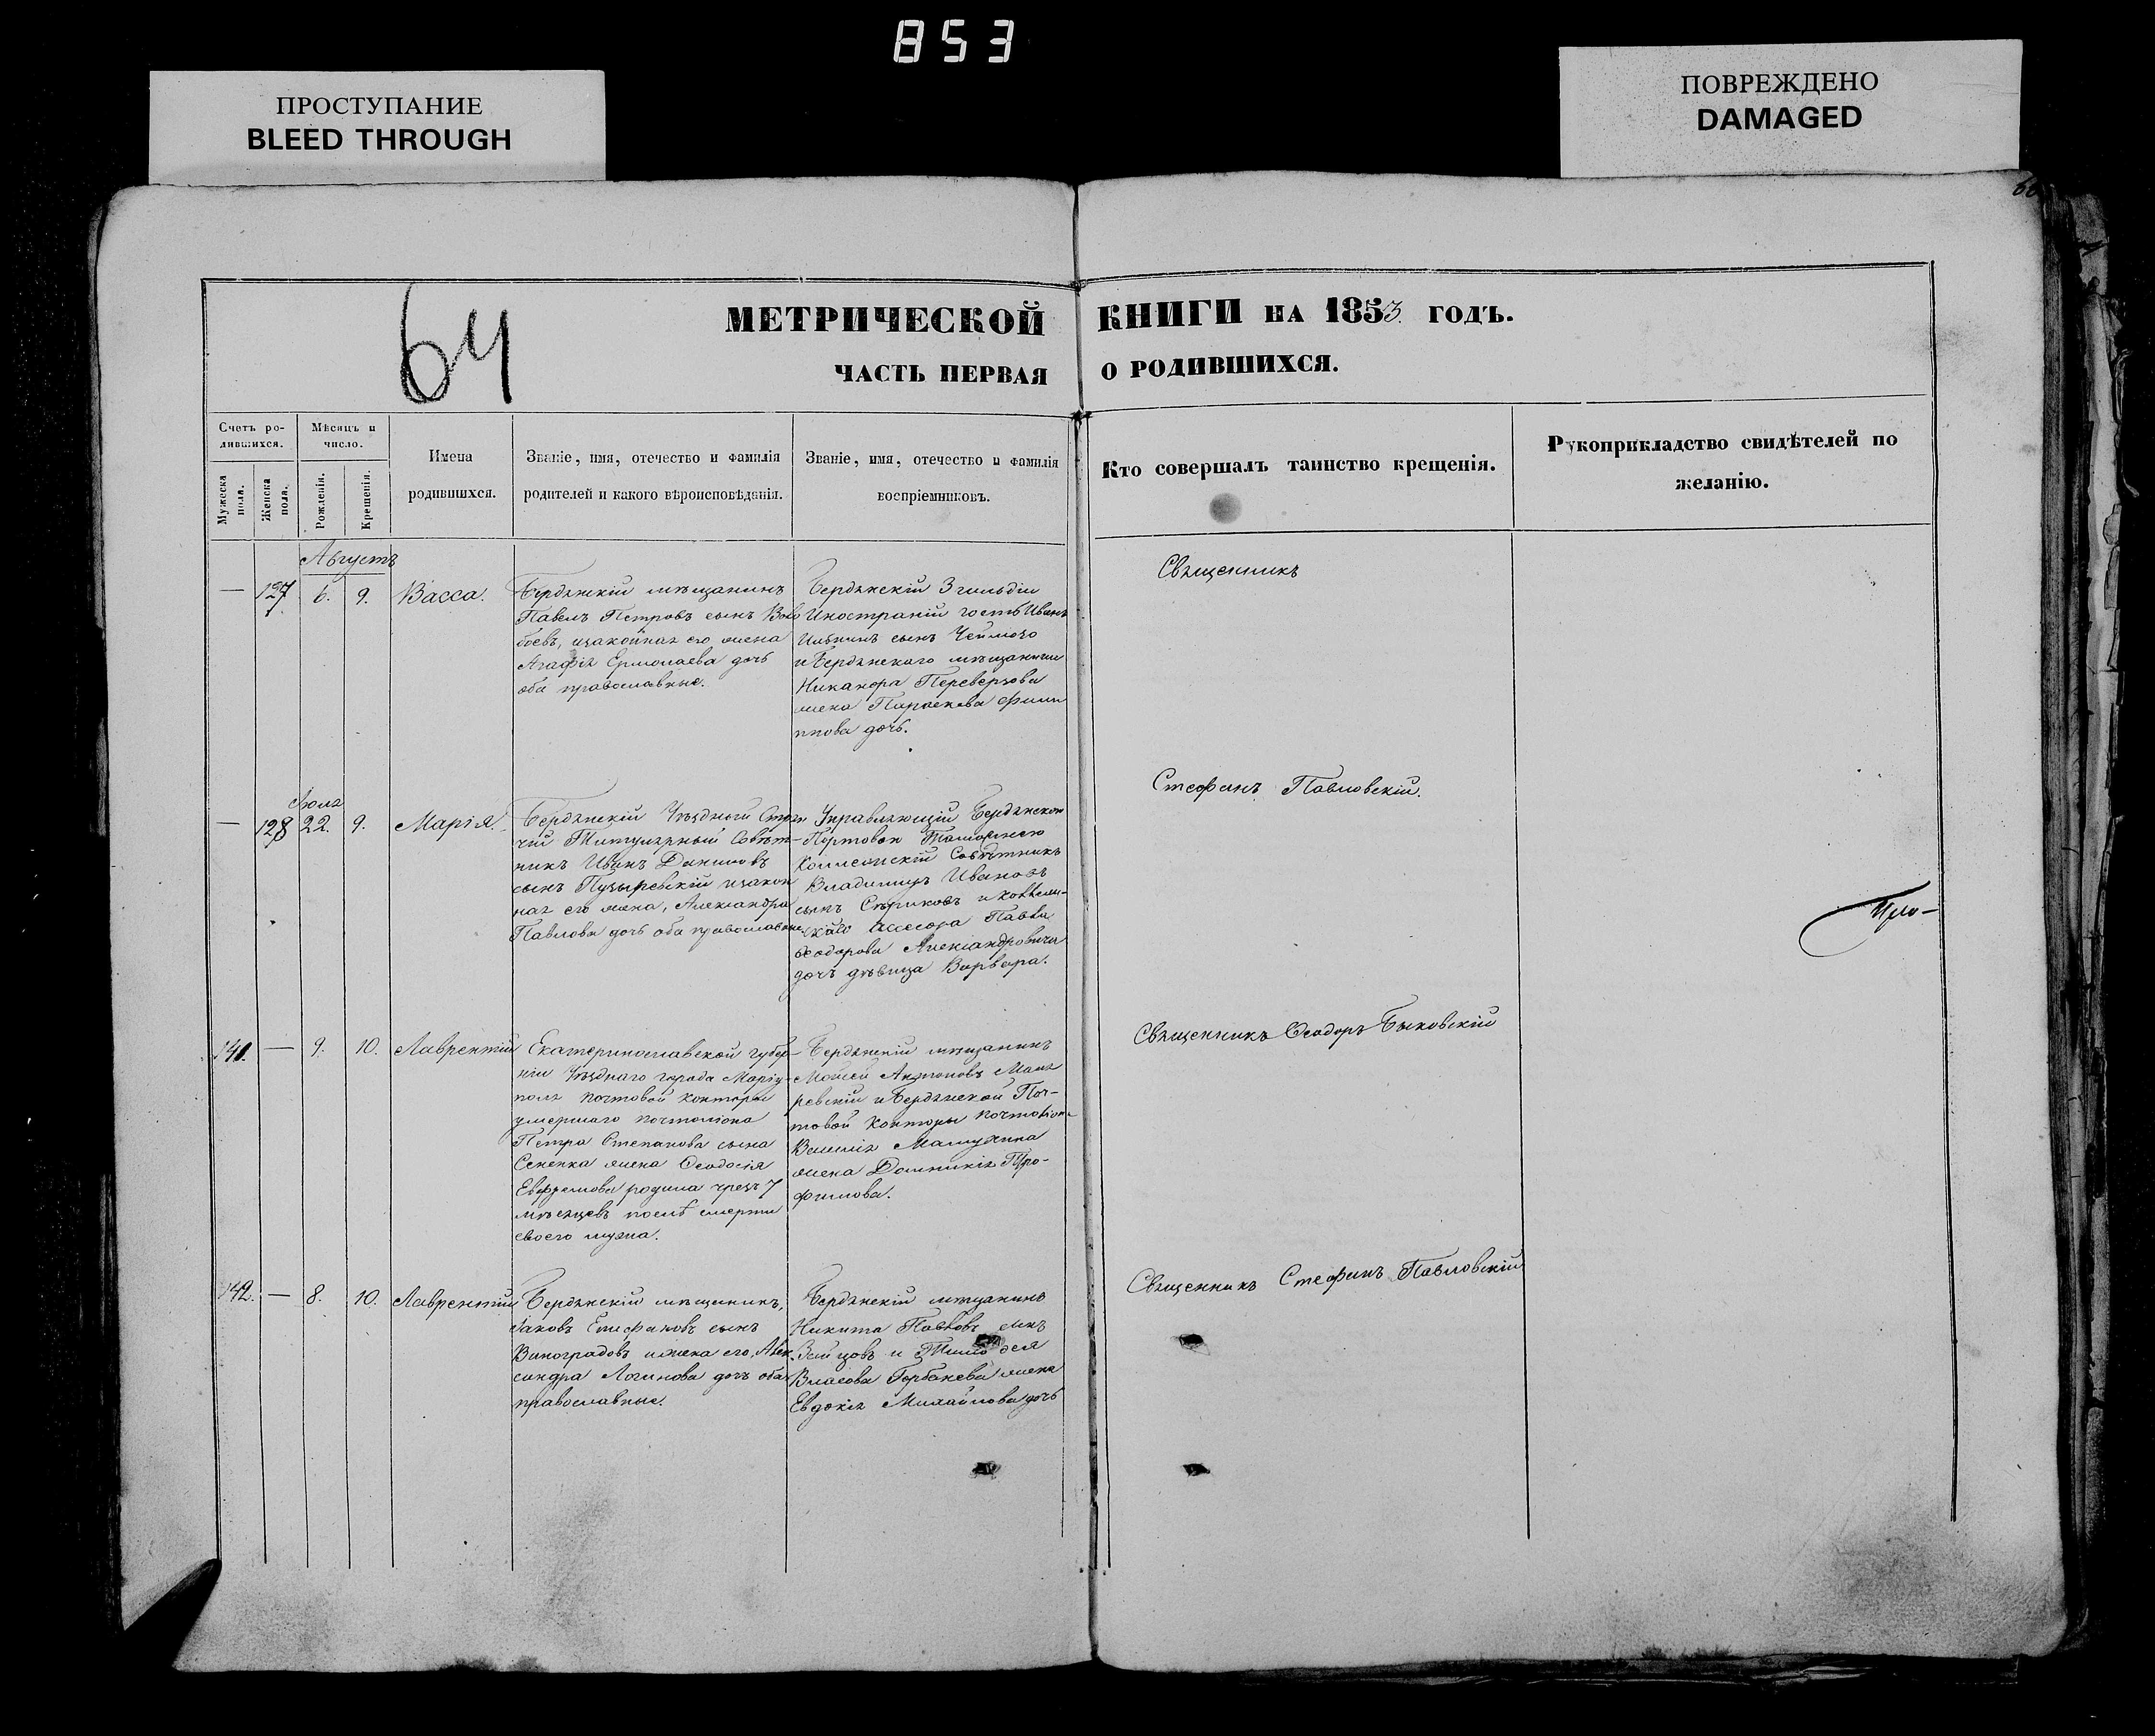 853
ПРОСТУПАНИЕ
BLEED THROUGH
ПОВРЕЖДЕНО
DAMAGED
64
МЕТРИЧЕСКОЙ КНИГИ НА 1853 ГОДЪ.
ЧАСТЬ ПЕРВАЯ О РОДИВШИХСЯ.
Счетъ ро-
дившихся.
Мужеска пола.
Женска пола.
Мѣсяцъ и
число.
Рожденія.
Крещенія.
Имена
родившихся.
Званіе, имя, отечество и фамилія
родителей и какого вѣроисповѣданія.
Званіе, имя, отечество и фамилія
воспріемниковъ.
Кто совершалъ таинство крещенія.
Рукоприкладство свидѣтелей по
желанію.
Августъ
— 127 6. 9. Васса.
Бердянскій мѣщанинъ
Павелъ Петровъ сынъ
его жена
Агафія Ермолаева дочь
оба православные.
Бердянскій 3 гильдіи
Иностраній гость Иванъ
сынъ
и Бердянскаго мѣщанина
Никанора Переверзова
жена Параскева Фили
ппова дочь.
Священникъ
Стефанъ Павловскій.
Іюля
— 128 22. 9. Марія.
Бердянскій Уѣздный Стряп
чій Титулярный Совѣт-
никъ Иванъ Даниловъ
сынъ Пузыревскій и закон
ная его жена, Александра
Павлова дочь оба православные
Управляющій Бердянскою
Портовою Таможнею
Коллежскій Совѣтникъ
Владимиръ Ивановъ
сынъ и Коллеж-
скаго Ассесора Павла
Ѳеодорова Александровича
дочь дѣвица Варвара.
141. — 9. 10. Лаврентій
Екатеринославской губер-
ніи Уѣзднаго города Маріу-
поля Почтовой Конторы
умершаго почталіона
Петра Степанова сына
Сененка жена Ѳеодосія
Евфремова родила чрезъ 7
мѣсяцевъ послѣ смерти
своего мужа.
Бердянскій мѣщанинъ
Моисей Антоновъ Мака
ревскій и Бердянской Поч-
товой Конторы почталіона
Василія
жена Домникія Тро-
фимова.
Священникъ Ѳеодоръ Быковскій
142. — 8. 10. Лаврентій
Бердянскій мѣщанинъ,
Іаковъ Епифановъ сынъ
Виноградовъ и жена его, Алек
сандра Логинова дочь оба
православные.
Бердянскій мѣщанинъ
Никита Павловъ сынъ
Зайцовъ и
Власова Горбанева жена
Евдокія Михайлова дочь
Священникъ Стефанъ Павловскій